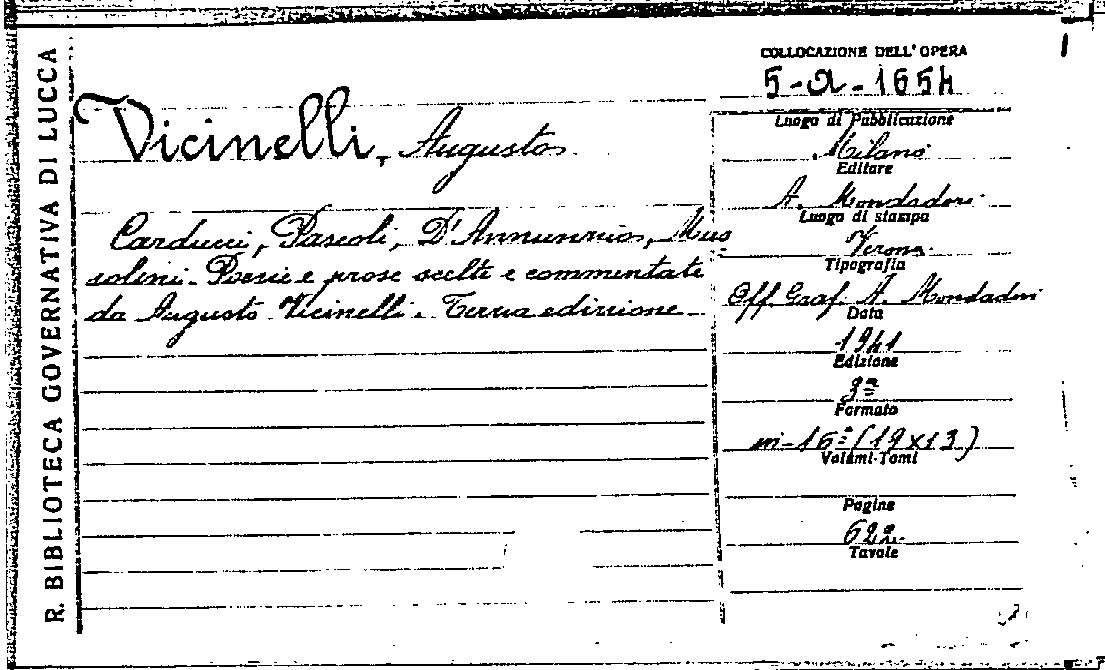 R. BIBLIOTECA GOVERNATIVA DI LUCCA
Vicinelli, Augusto
Carducci, Pascoli, D'Annunzio, Mus
solini. Poesie e prose scelte e commentate
da Augusto Vicinelli. Terza edizione
COLLOCAZIONE DELL'OPERA
5-a-1654
Luogo di Pubblicazione
Milano
Editore
A. Mondadori
Luogo di stampa
Verona
Tipografia
Off. Graf. A. Mondadori
Data
1941
Edizione
3ª
Formato
in-16º (19x13)
Volumi-Tomi
Pagine
622
Tavole